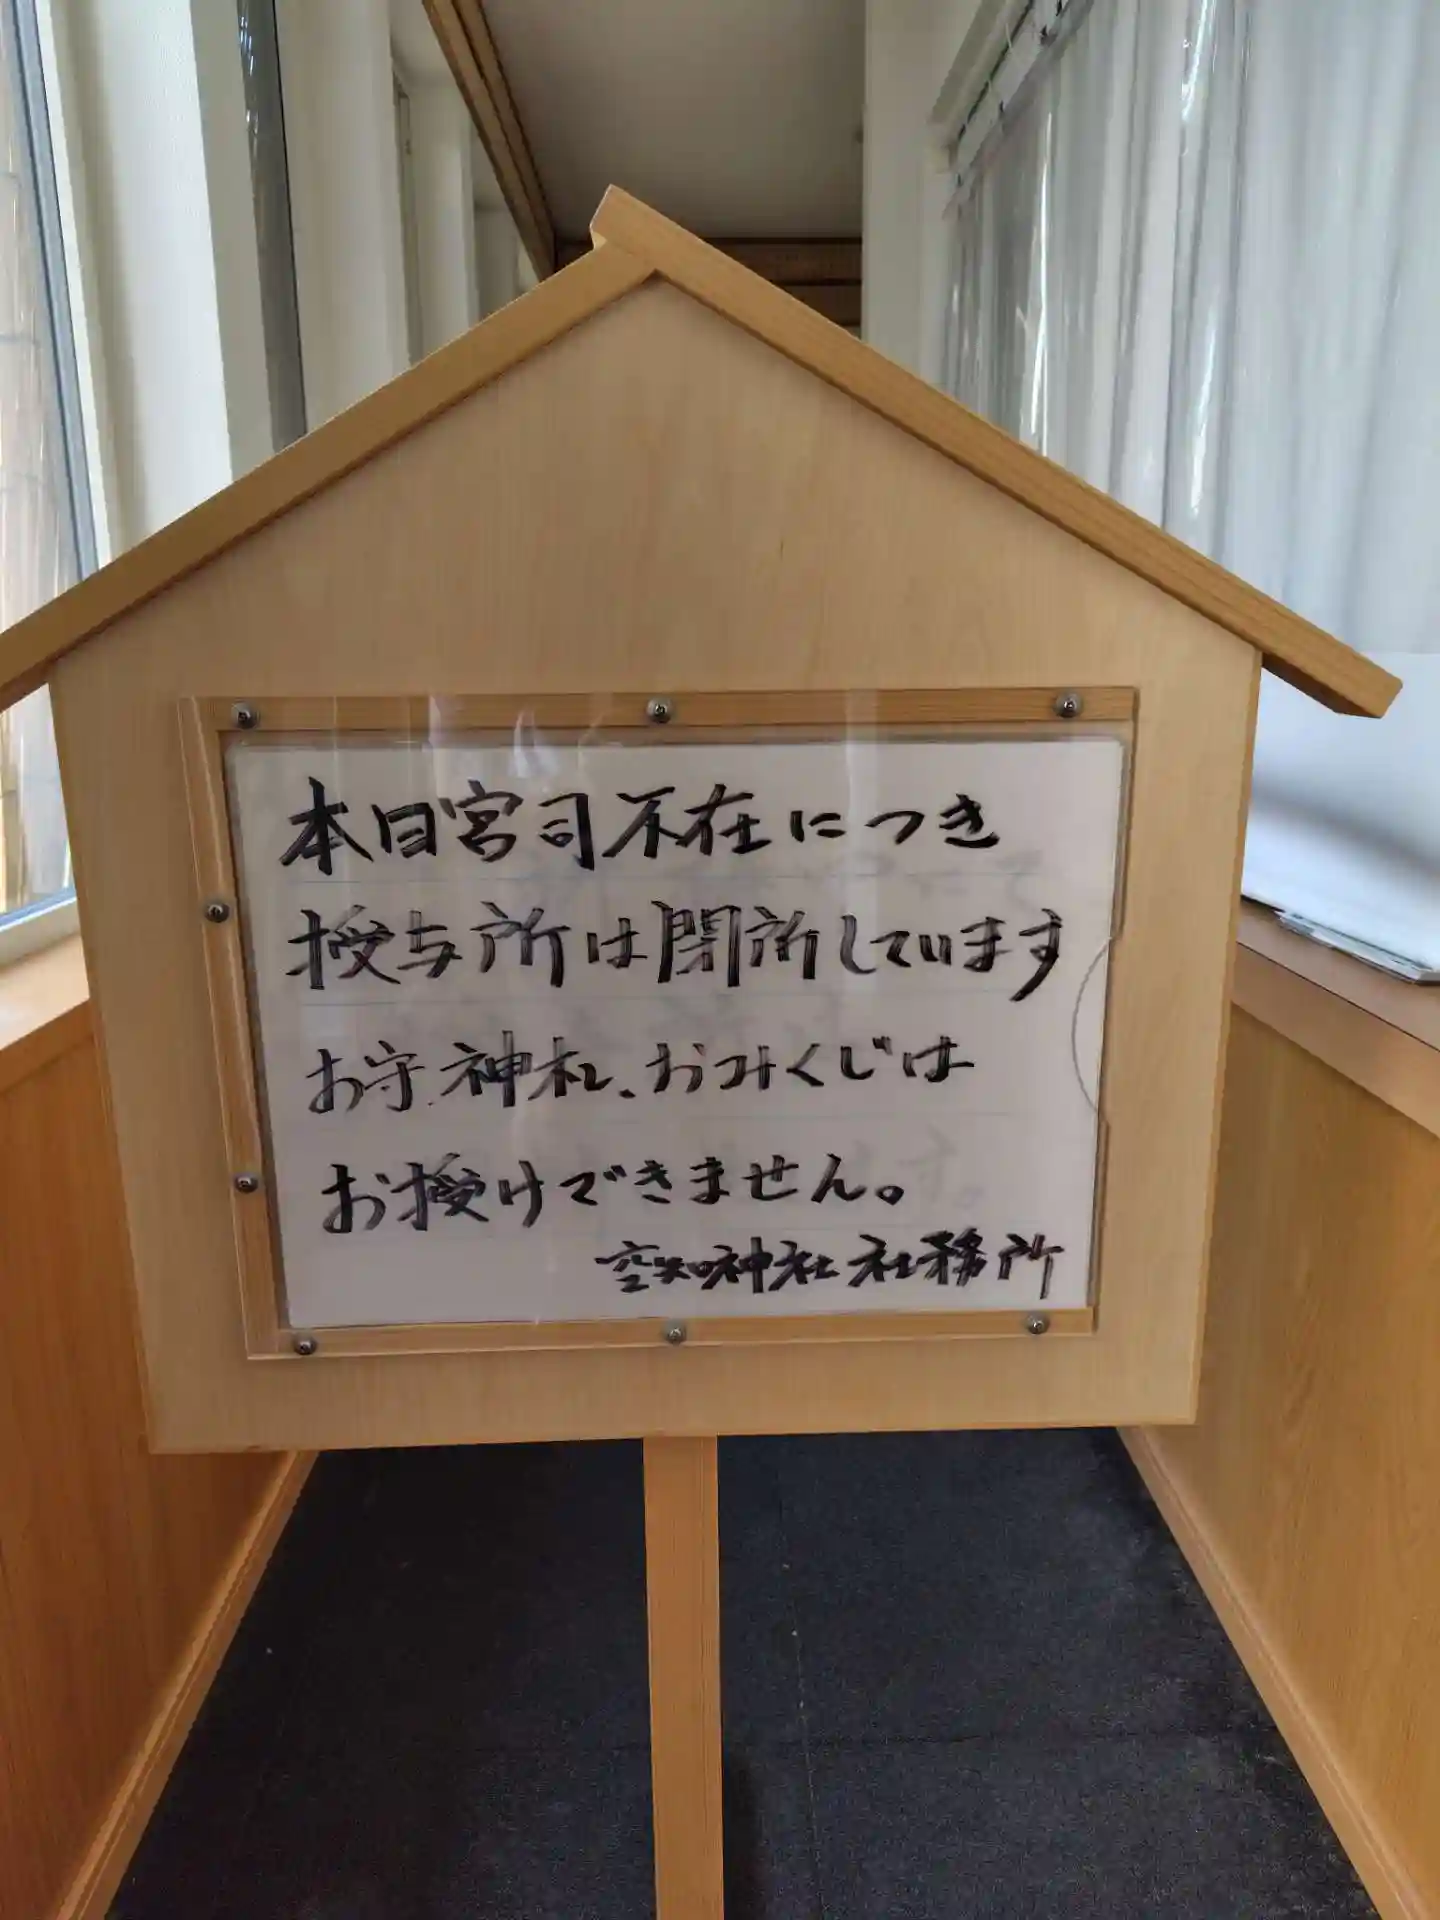 本日宮司不在につき
授与所は閉所しています
お守、神札、おみくじは
お授けできません。
空知神社社務所